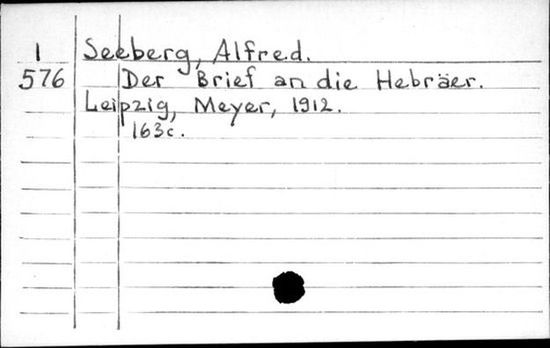 1 Seeberg, Alfred.
576 Der Brief an die Hebräer.
Leipzig, Meyer, 1912.
163c.